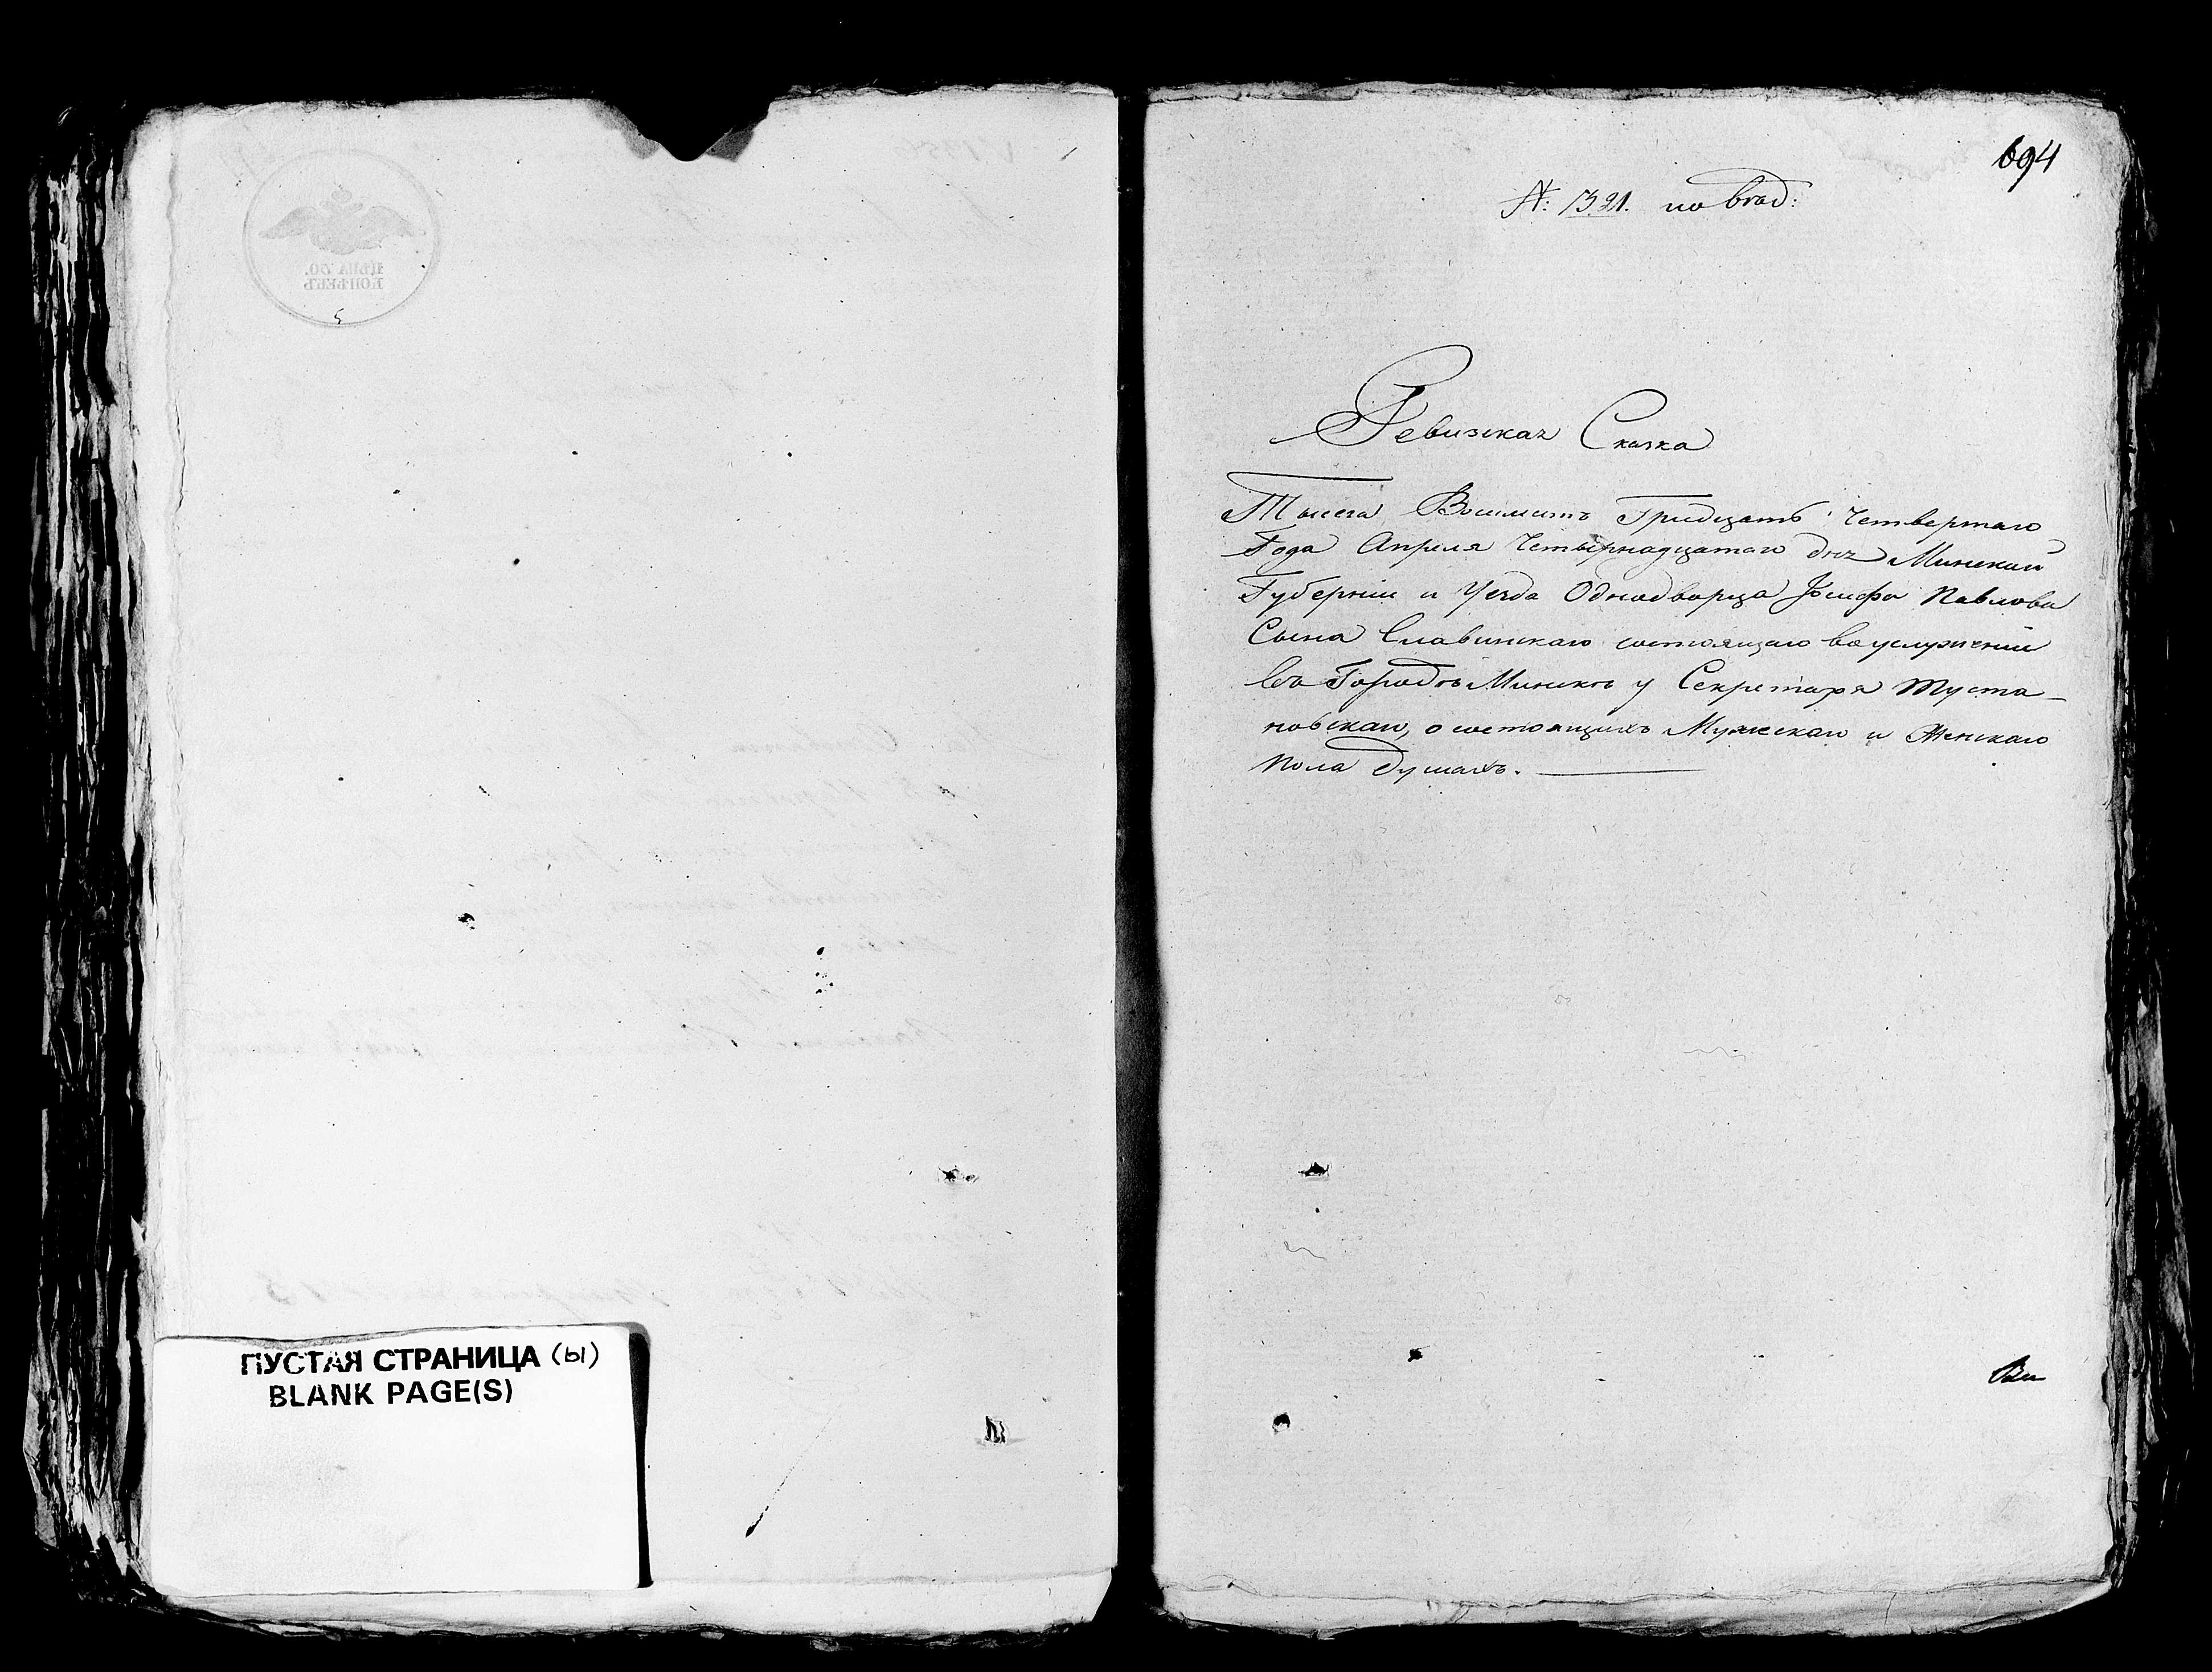 ЦѢНА 50.
КОПѢЕКЪ
ПУСТАЯ СТРАНИЦА (ы)
BLANK PAGE(S)
694
№: 1321. по втод:
Ревизская Сказка
Тысеча Восимьсотъ Тридцать Четвертаго
Года Апреля Четырнадцатаго дня Минской
Губерніи и Уезда Однодворца Іосифа Павлова
Сына Славинскаго состоящаго во услуженіи
въ Городѣ Минскѣ у Секретаря Туста-
новскаго, о состоящихъ Мужескаго и Женскаго
пола душахъ.